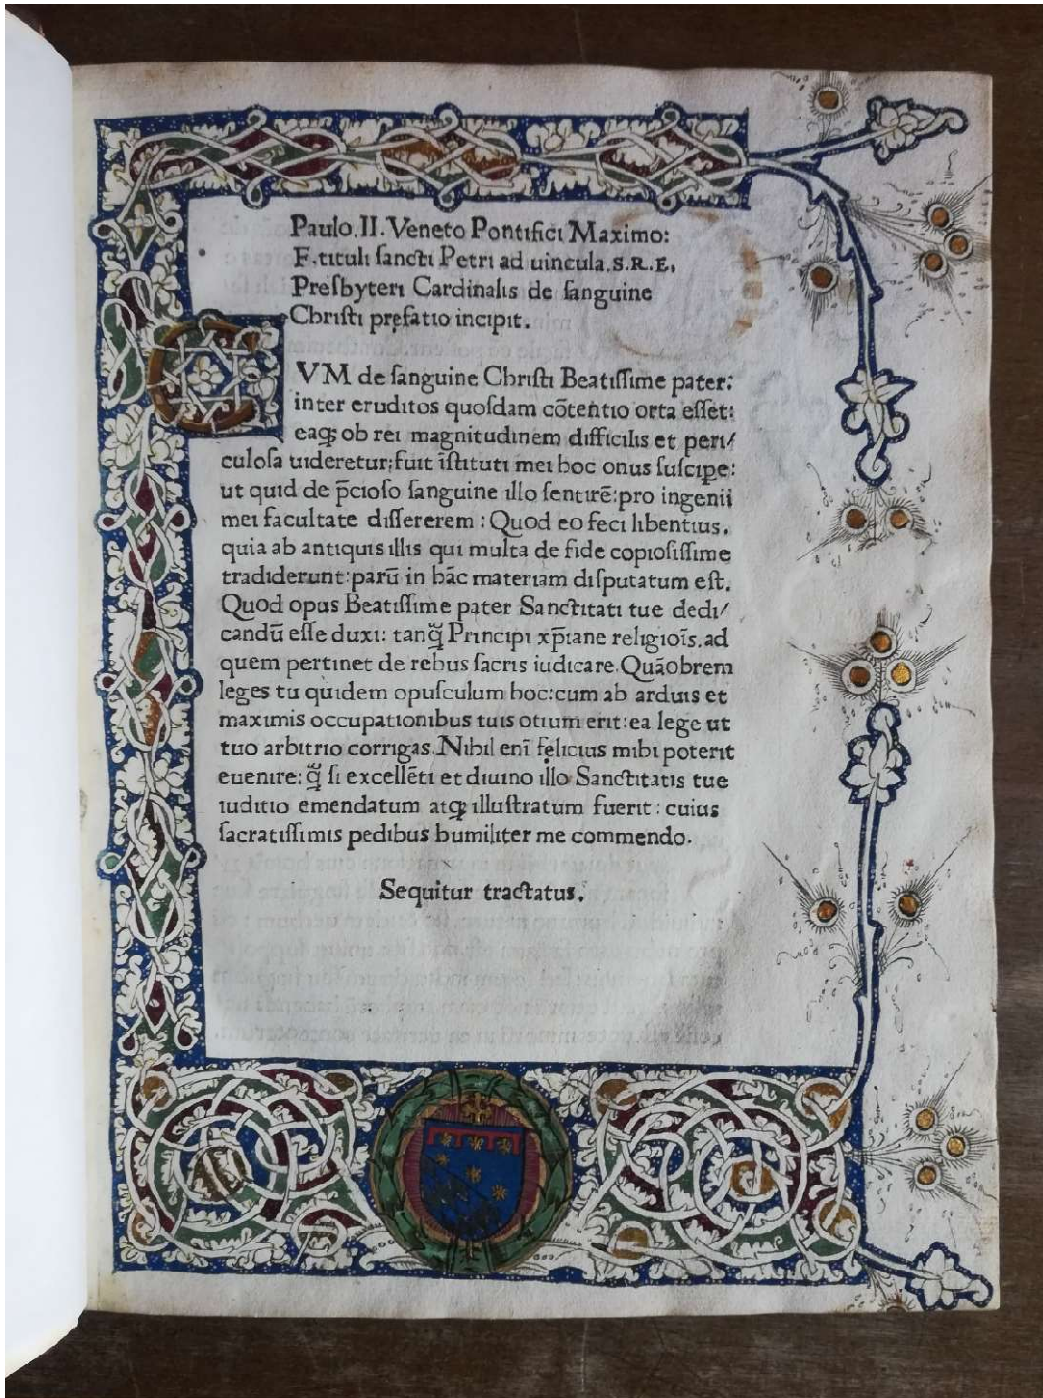 Paulo.II.Veneto Pontifici Maximo:
F.tituli sancti Petri ad uincula.S.R.E.
Presbyteri Cardinalis de sanguine
Christi prefatio incipit.
CVM de sanguine Christi Beatissime pater:
inter eruditos quosdam cōtentio orta esset:
eaqꝫ ob rei magnitudinem difficilis et peri/
culosa uideretur;fuit īstituti mei hoc onus suscipe:
ut quid de p̄cioso sanguine illo sentirē:pro ingenii
mei facultate dissererem : Quod eo feci libentius.
quia ab antiquis illis qui multa de fide copiosissime
tradiderunt:parū in hāc materiam disputatum est.
Quod opus Beatissime pater Sanctitati tue dedi/
candū esse duxi: tanq̄ Principi xp̄iane religiōis.ad
quem pertinet de rebus sacris iudicare.Quāobrem
leges tu quidem opusculum hoc:cum ab arduis et
maximis occupationibus tuis otium erit:ea lege ut
tuo arbitrio corrigas.Nihil enī felicius mihi poterit
euenire: q̄ si excellēti et diuino illo Sanctitatis tue
iuditio emendatum atqꝫ illustratum fuerit: cuius
sacratissimis pedibus humiliter me commendo.
Sequitur tractatus.